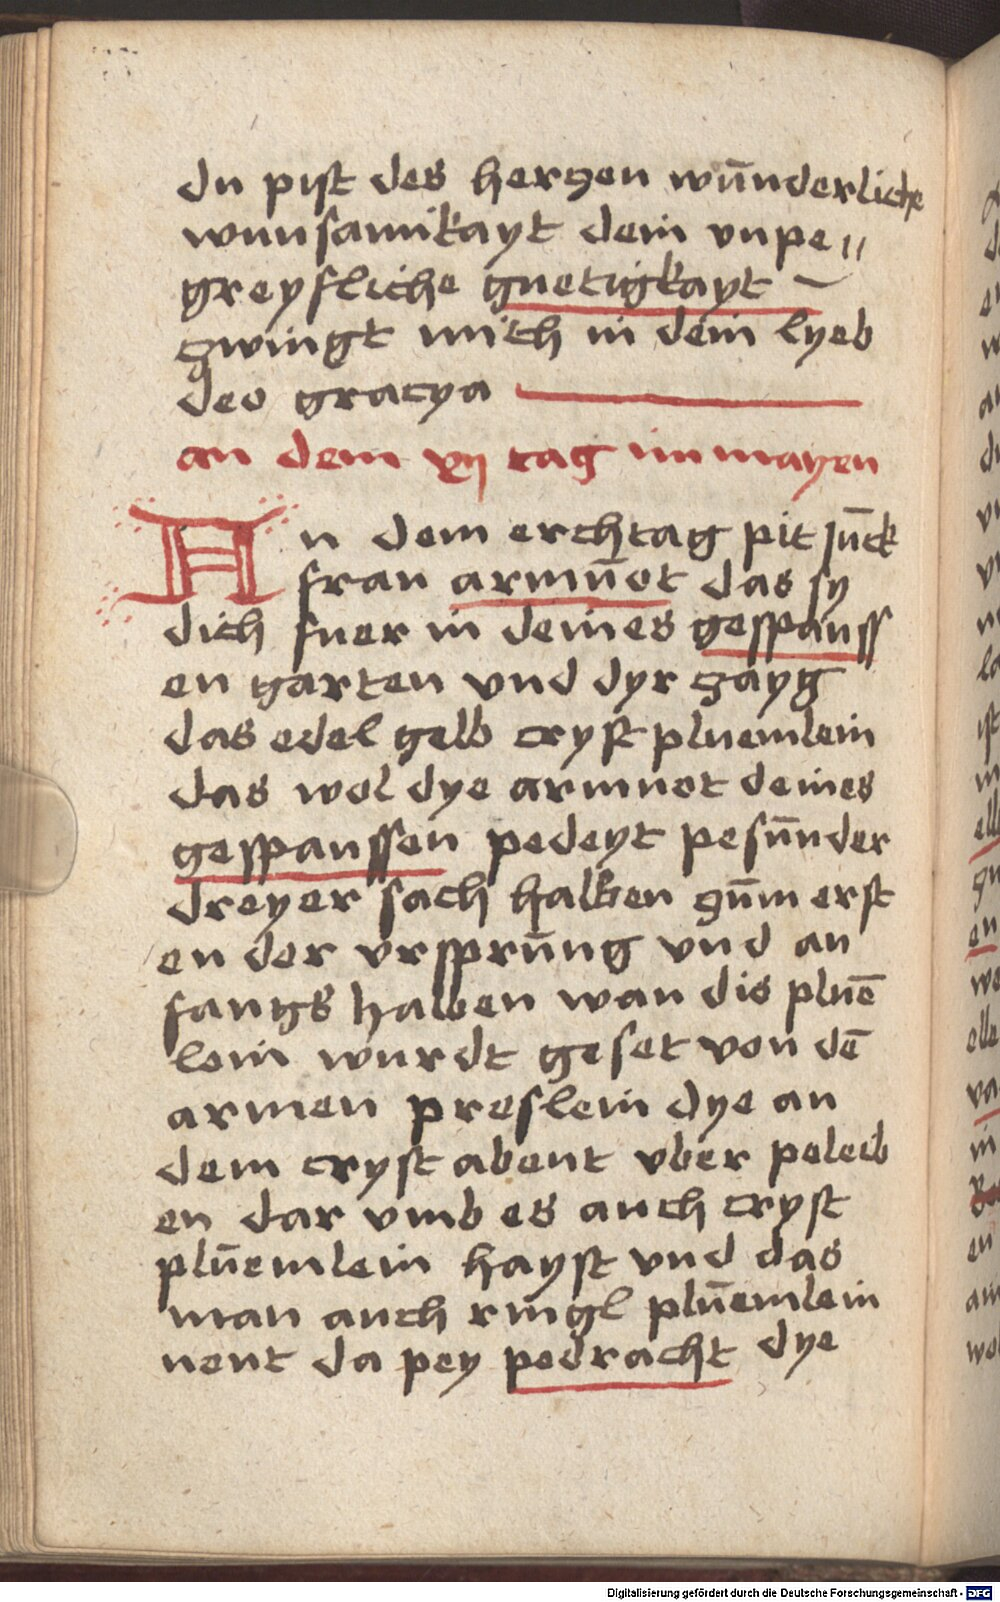 du pist des herczen wūnderliche
wunsamikayt dein vnpe〃
greyfliche guetigkayt –
zwingt mich in dein lyeb
deo gracya
an dem xij tag im mayen
An dem erchtag pit jūck
frau armūot das sy
dich fuer in deines gespanss
en garten vnd dyr zayg
das edel gelb cryst pluemlein
das wol dye armuot deines
gespanssen pedeyt pesūnder
dreyer sach halben zūm erst
en der vrsprūng vnd an
fangs halben wan dis pluē
lein wurdt geset von dē
armen preslein dye an
dem cryst abent vber peleib
en dar vmb es auch cryst
plūemlein hayst vnd das
man auch ringl plūemlein
nent da pey pedracht dye
Digitalisierung gefördert durch die Deutsche Forschungsgemeinschaft - DFG